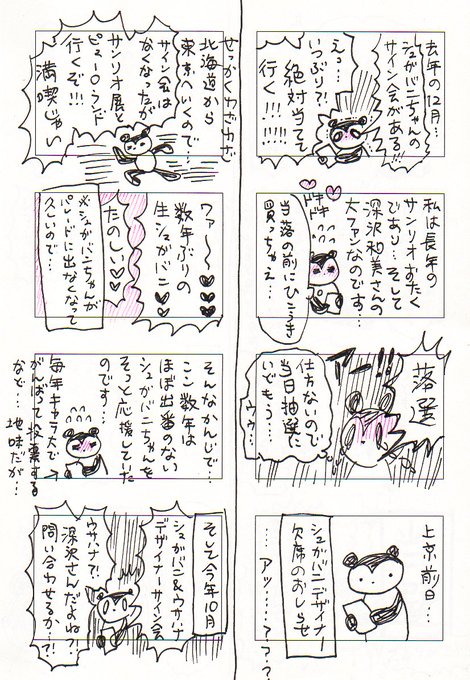 去年の12月…
シュガバニちゃんの
サイン会がある!!!
えっ…
いつぶり?!
絶対当てて
行く!!!!
私は長年の
サンリオおたく
であり…そして
深沢和美さんの
大ファンなのです…
ドキ
ドキ
当落の前にひこうき
買っちゃえ…
落選
仕方ないので
当日抽選に
いどもう…
ウウ…
上京前日…
シュガバニデザイナー
欠席のおしらせ
……アッ…
…???
せっかくわざわざ
北海道から
東京へいくので…
サイン会は
なくなったが
サンリオ展と
ピューロランド
行くぞ!!!
満喫じゃい
ワァ〜〜
数年ぶりの
生シュガバニ
たのしい
※シュガバニちゃんが
パレードに出なくなって
久しいので…
そんなかんじで…
ここ数年は
ほぼ出番のない
シュガバニちゃんを
そっと応援していた
のです…
毎年キャラ大で→
がんばって投票する
など…地味だが…
そして今年10月
シュガバニ&ウサハナ
デザイナーサイン会
ウサハナ?!
深沢さんだよね?!
問い合わせるか…?!